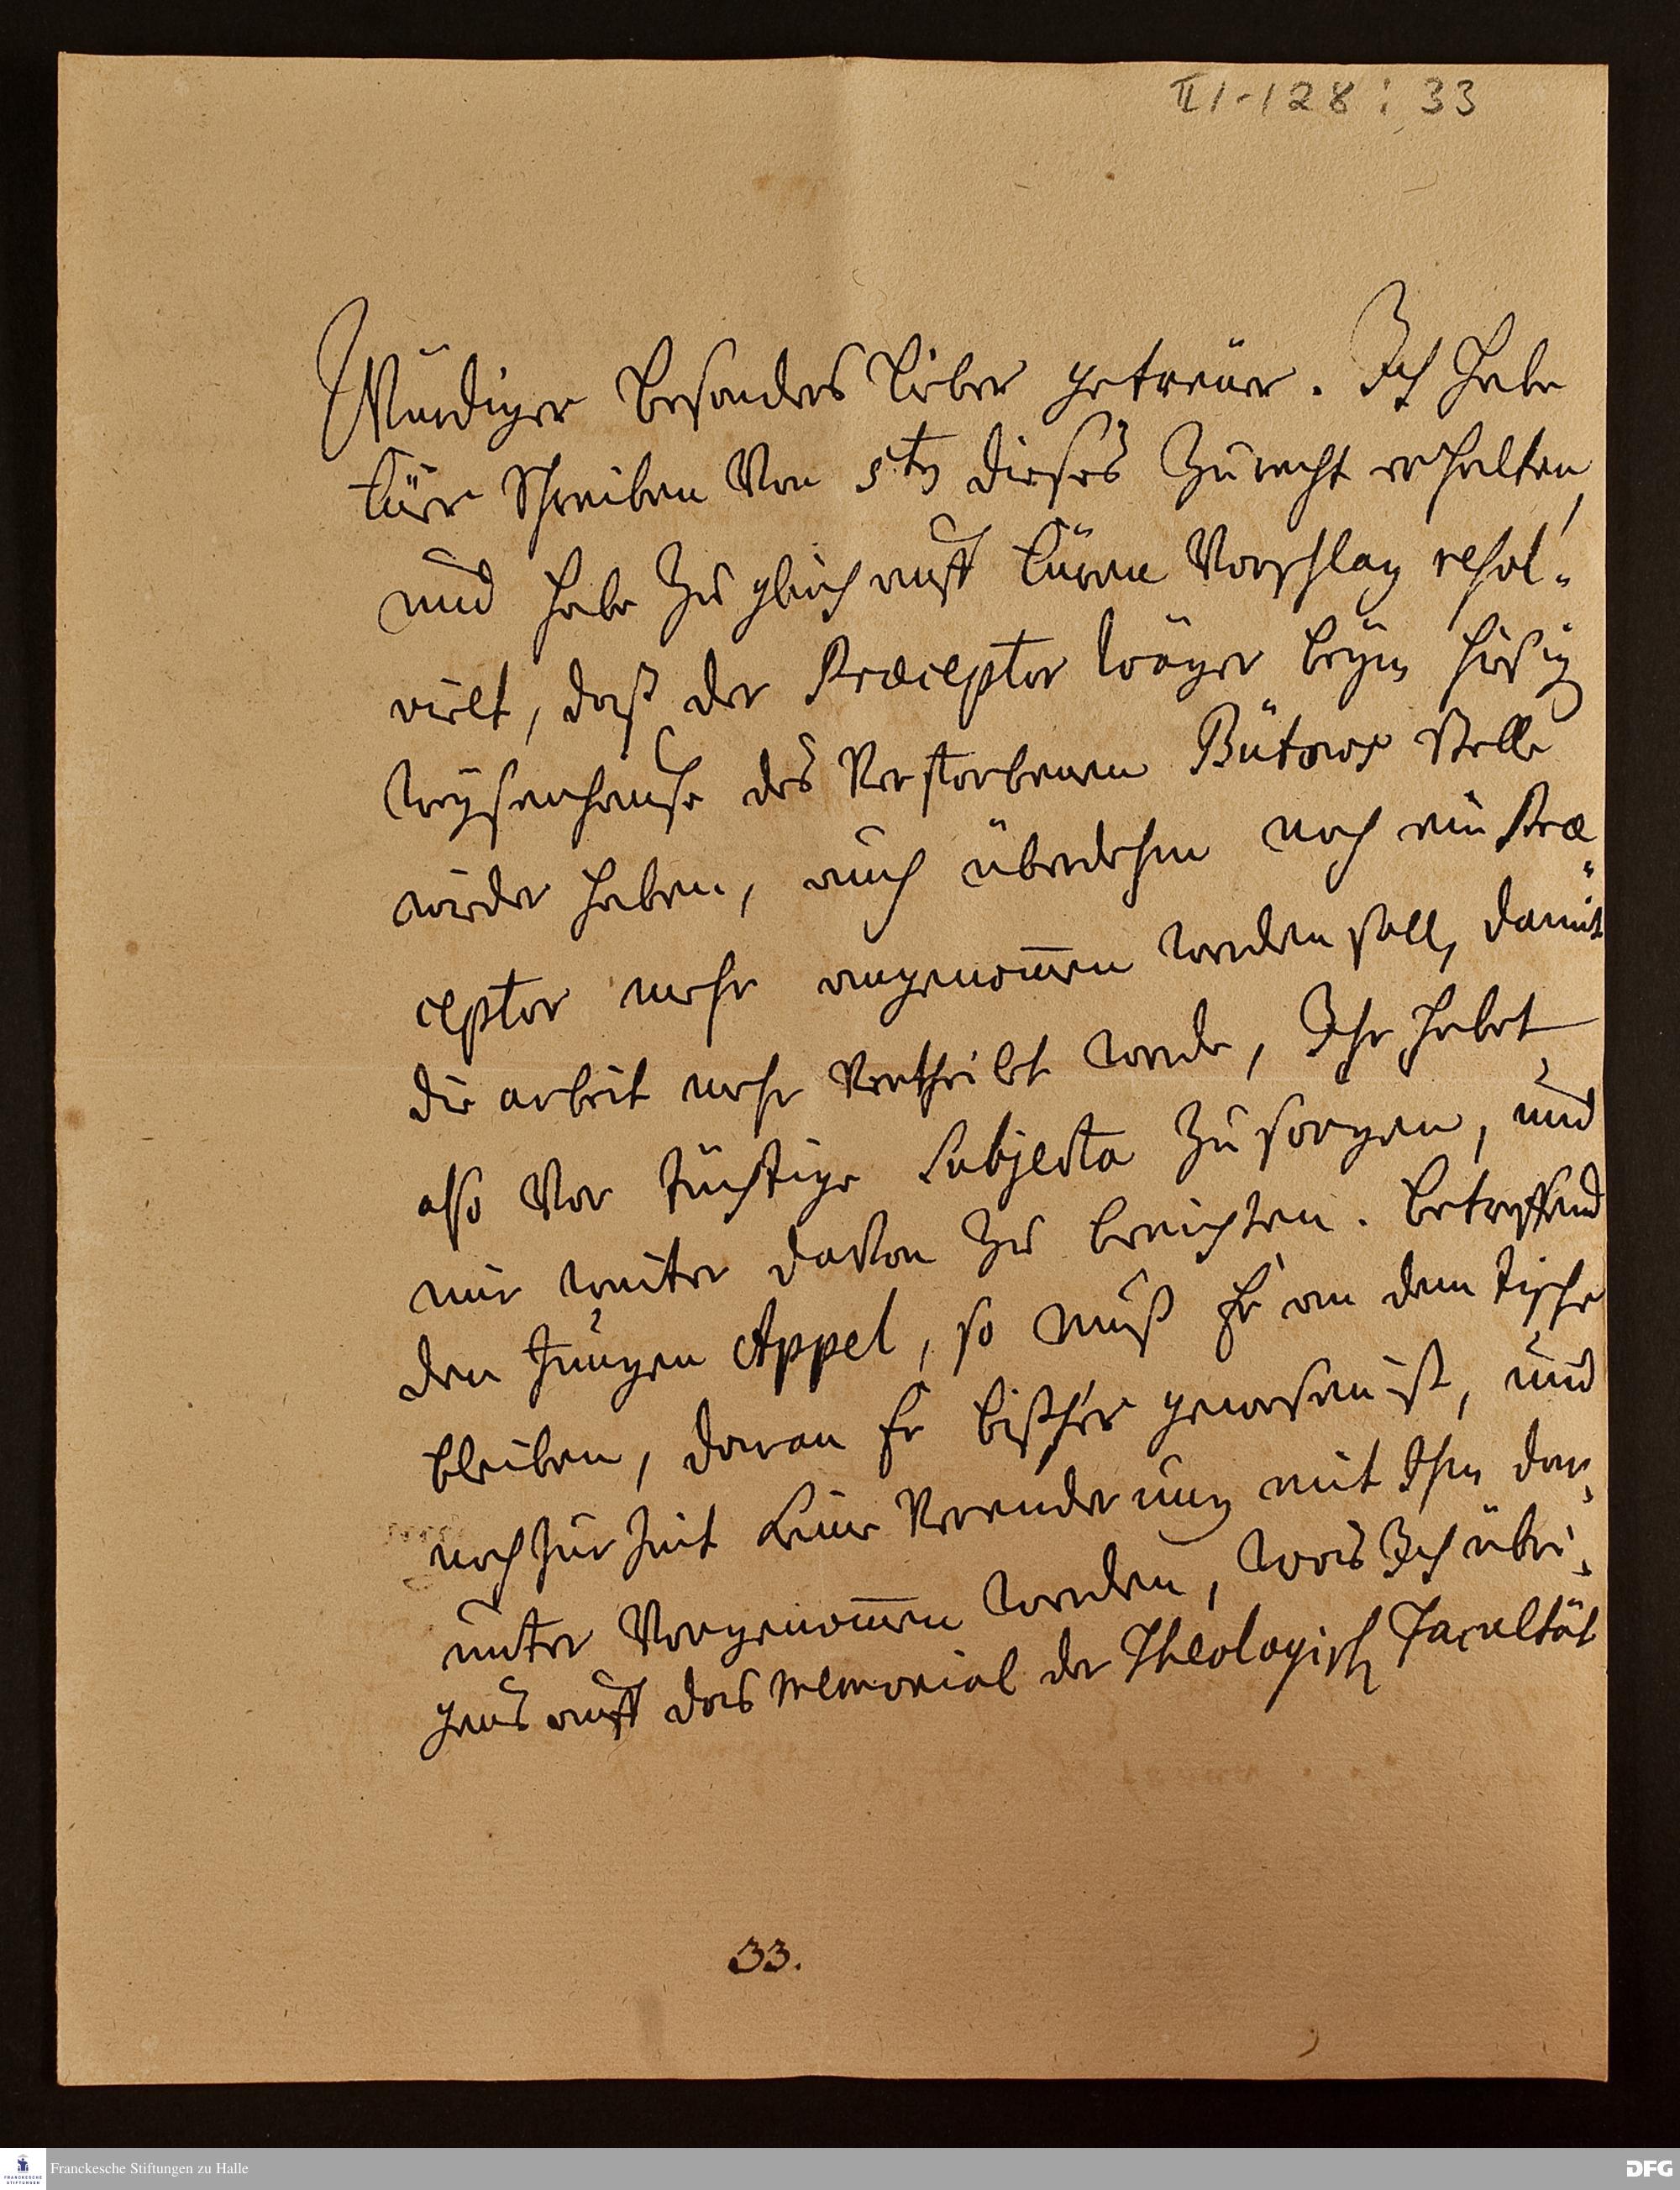 II 1-128 : 33
Würdiger besonders lieber getreüer. Ich habe
Eüer Schreiben von 5t dieses zu recht erhalten,
und habe zugleich auff Eüren Vorschlag resol-
virt, daß der Præceptor beym hiesig
Weysenhause des verstorbenen Bütows stelle
wieder haben, auch überdehm noch ein Præ-
ceptor mehr angenom̅en werden soll, damit
die arbeit mehr vertheilet werde, Ihr habet
also vor tüchtige Subjecta zu sorgen, und
mir weiter davon zu berichten. Betreffend
den Jungen Appel, so muß Er an dem tische
bleiben, daran Er bißher gewesen ist, und
noch zur Zeit keine Verenderung mit Ihm dar-
unter vorgenom̅en werden, was Ich übri-
gens auff das Memorial der Theologisch Facultät
33.
Franckesche Stiftungen zu Halle
FRANCKESCHE STIFTUNGEN
DFG